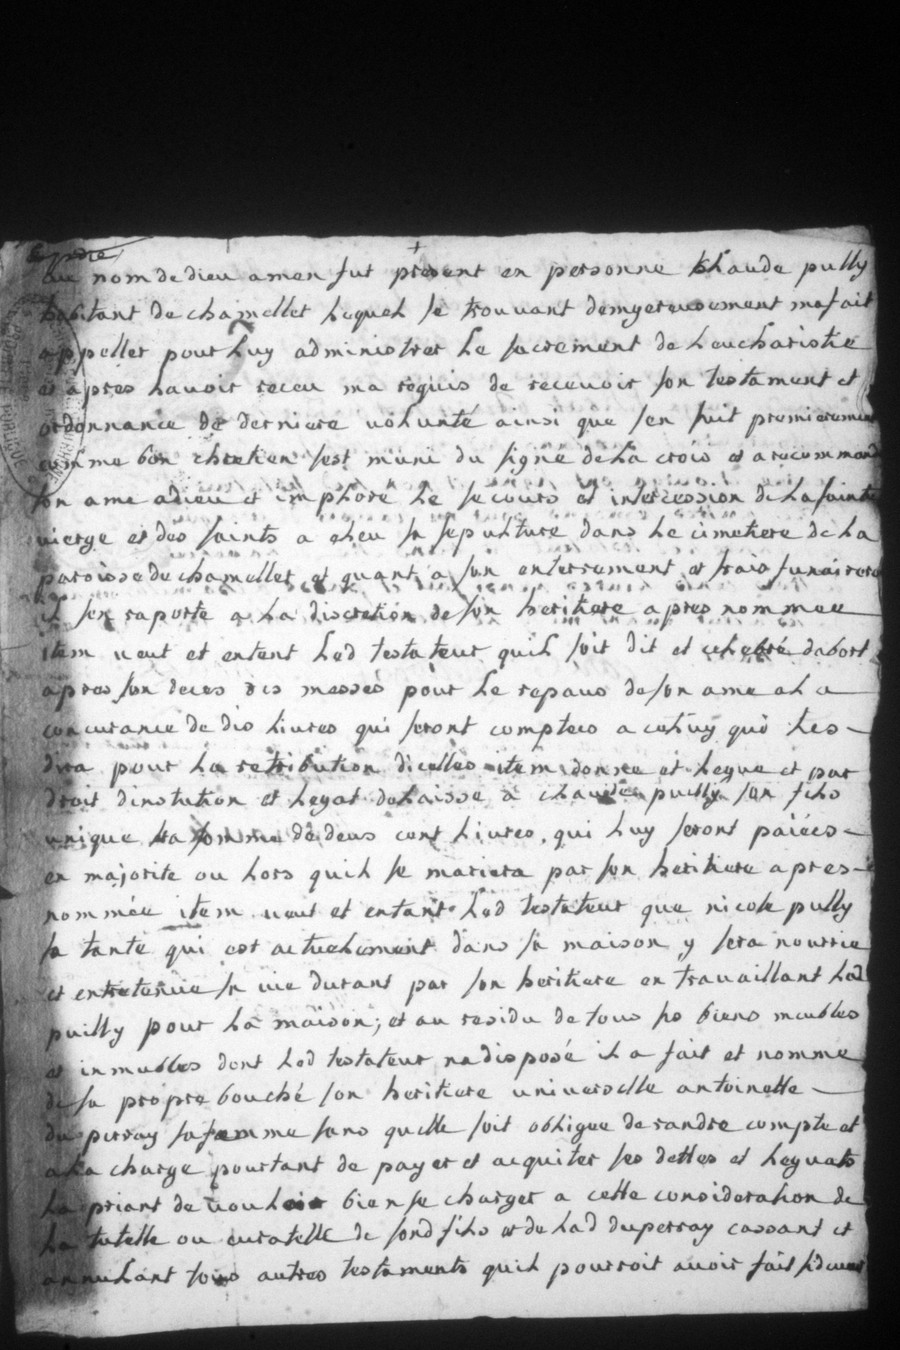 au nom de dieu amen fut present en personne Claude pully
habitant de chamellet lequel se trouvant dengereusement mafait
appeller pour luy administrer le sacrement de leucharistie
et apres lavoir receu ma requis de recevoir son testament et
ordonnance de derniere volunté ainsi que sen suit premierement
comme bon chretien sest muni du signe de la crois et a recommandé
son ame adieu et implore le secours et intercession de la sainte
vierge et des saints a eleu sa sepulture dans le cimetiere de la
paroisse de chamellet et quant a son enterrement et frais funeraires
il sen raporte a la discretion de son heritiere apres nommee
item veut et entent led testateur quil soit dit et celebré dabort
apres son deces des messes pour le repaus de son ame a la
concurance de dis livres qui seront comptees a celuy qui les
dira pour la retribution dicelles item donne et legue et par
droit dinstution et legat delaisse a claude puilly son fils
unique la somme de deus cent livres, qui luy seront païées
en majorite ou lors quil se mariera par son heritiere apres
nommée item veut et entant led testateur que nicole pully
sa tante qui est actuelement dans sa maison y sera nourrie
et entretenue sa vie durant par son heritiere en travaillant lad
puilly pour la maison; et au residu de tous ses biens meubles
et inmubles dont led testateur na disposé il a fait et nomme
de sa propre bouche son heritiere universelle antoinette
du perray sa femme sans quelle soit obligee de randre compte et
a la charge pourtant de payer et acquiter ses dettes et leguats
la priant de vouloir bien se charger a cette consideration de
la tutelle ou curatelle de sond fils et de lad duperray cassant et
annulant tous autres testaments quil pourroit avoir fait